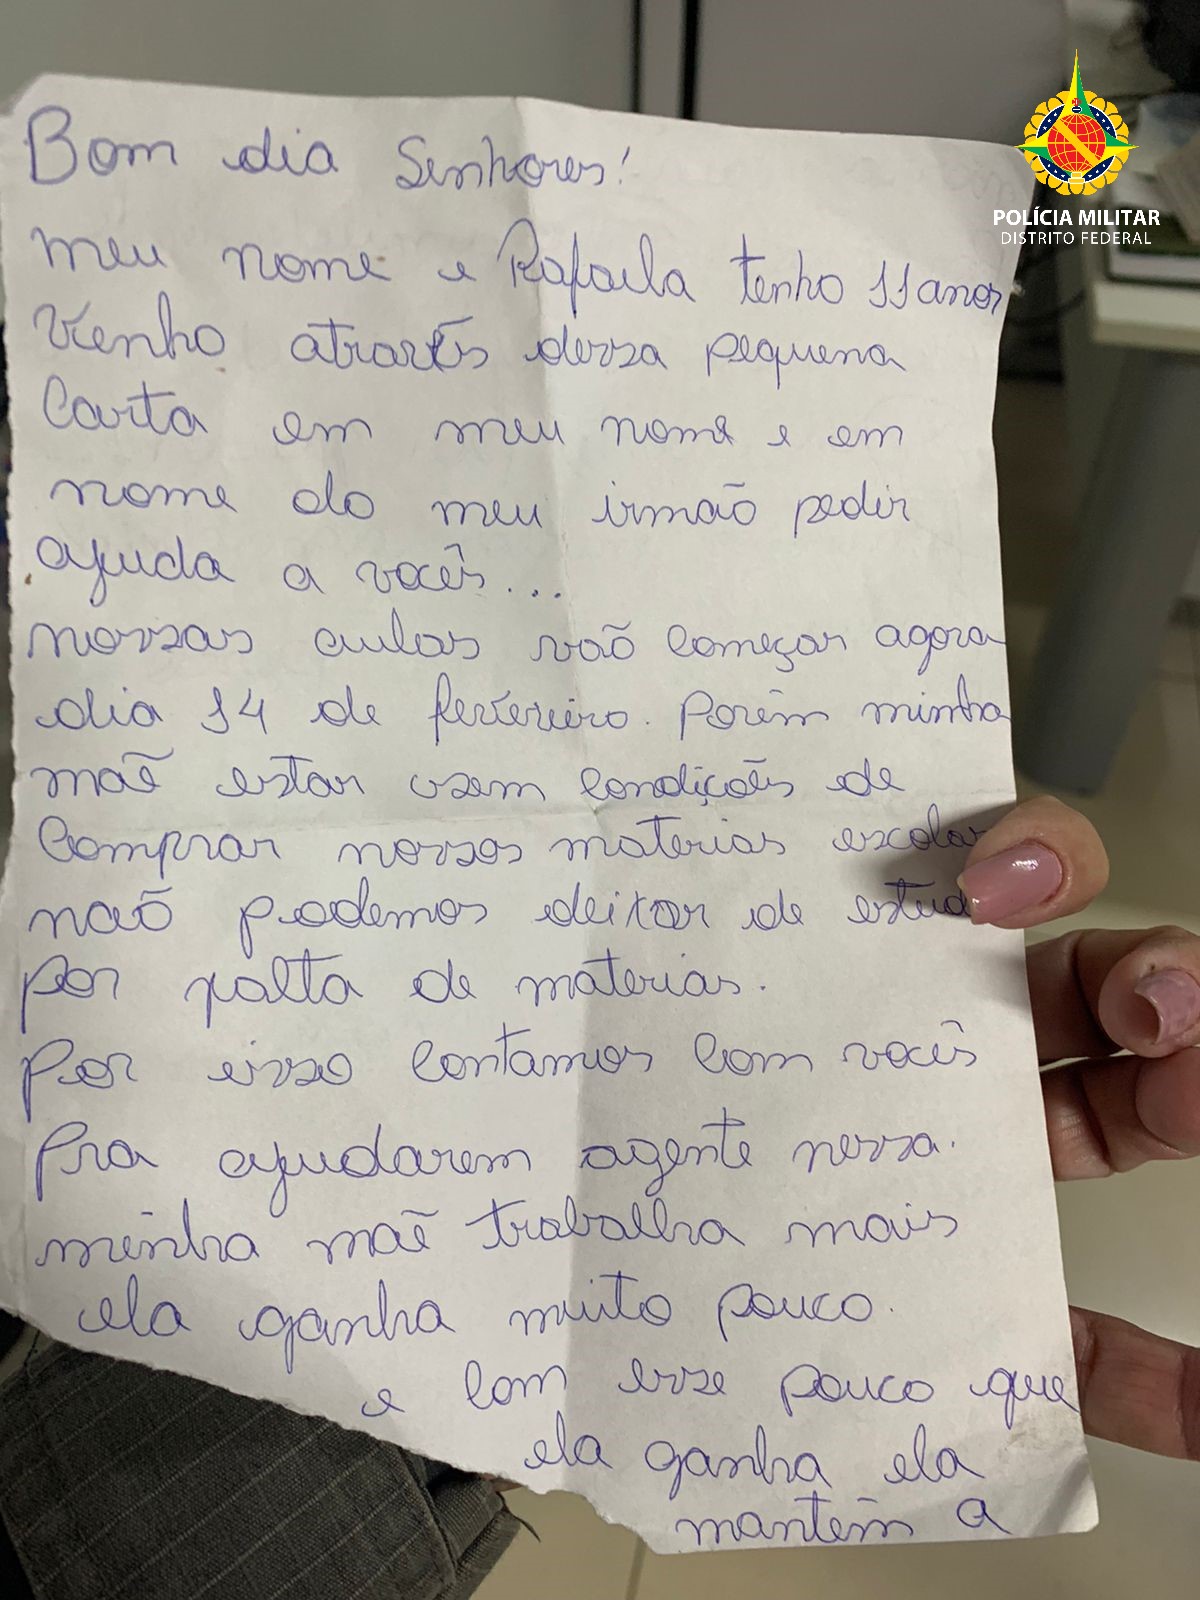 POLÍCIA MILITAR
DISTRITO FEDERAL
Bom dia Senhores!
meu nome e Rafaela tenho 11 anos
Venho através dessa pequena
Carta em meu nome e em
nome do meu irmão pedir
ajuda a vocês...
nossas aulas vão começar agora
dia 14 de fevereiro. Porém minha
maẽ estar sem condições de
Comprar nossos materias escolar
naõ podemos deixar de estud
por falta de materias.
Por isso contamos com vocês
Pra ajudarem agente nessa.
minha maẽ trabalha mais
ela ganha muito pouco.
e com esse pouco que
ela ganha ela
mantêm a